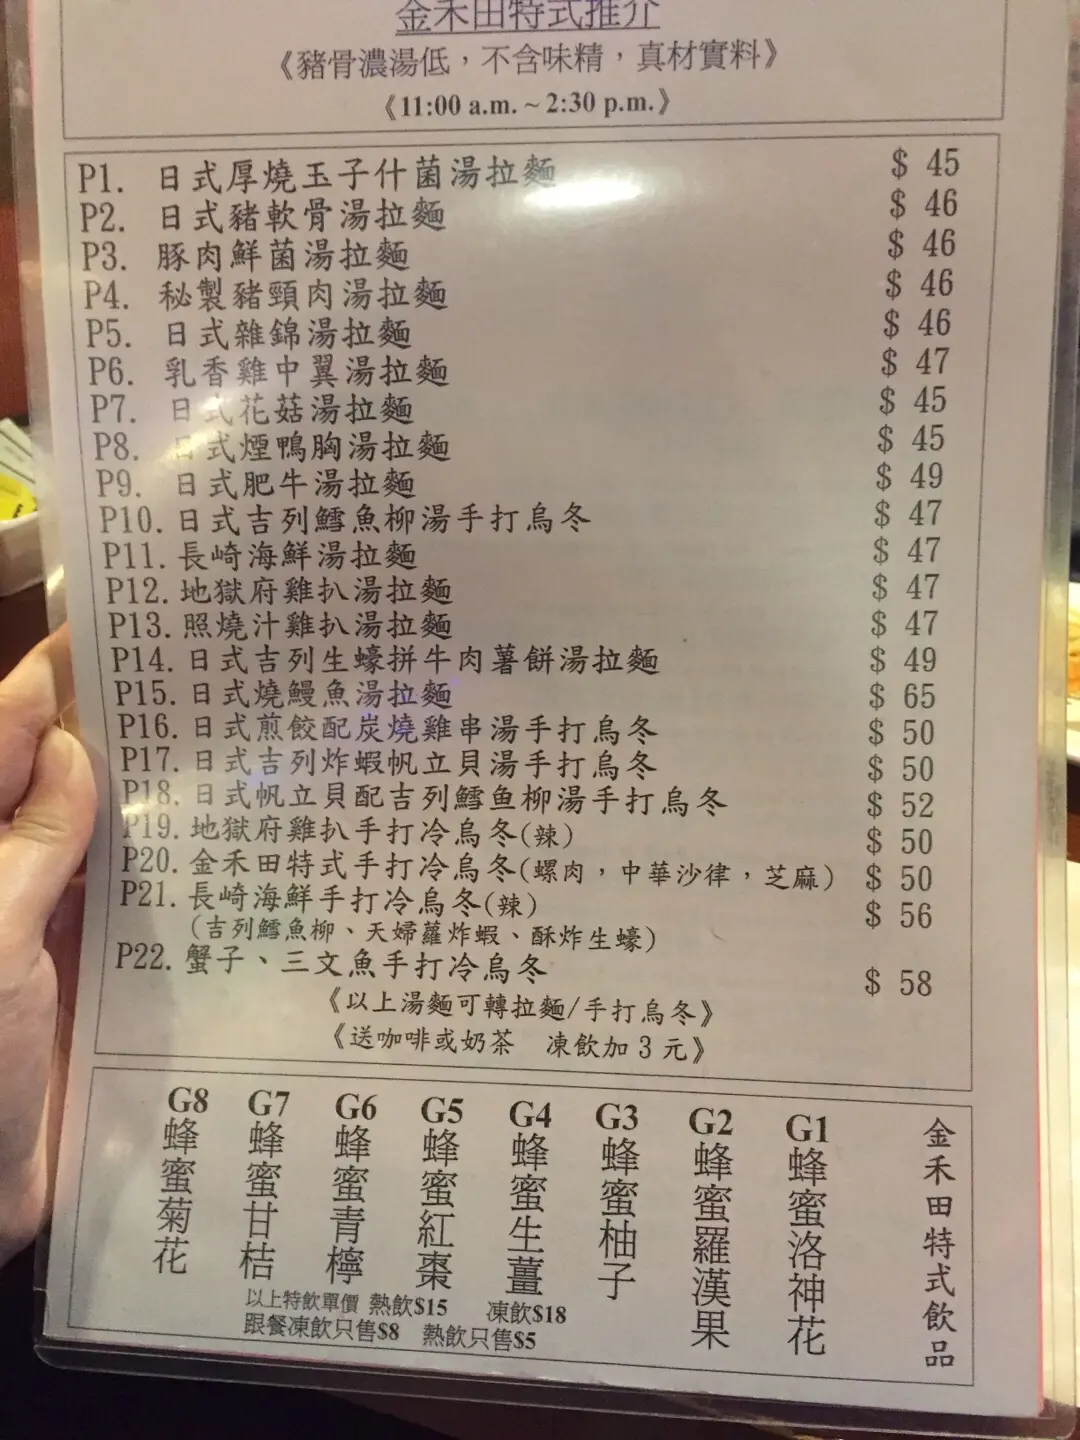 金禾田特式推介
《豬骨濃湯低，不含味精，真材實料》
《11:00 a.m. ~ 2:30 p.m.》
P1. 日式厚燒玉子什菌湯拉麵 $ 45
P2. 日式豬軟骨湯拉麵 $ 46
P3. 豚肉鮮菌湯拉麵 $ 46
P4. 秘製豬頸肉湯拉麵 $ 46
P5. 日式雜錦湯拉麵 $ 46
P6. 乳香雞中翼湯拉麵 $ 47
P7. 日式花菇湯拉麵 $ 45
P8. 日式煙鴨胸湯拉麵 $ 45
P9. 日式肥牛湯拉麵 $ 49
P10. 日式吉列鱈魚柳湯手打烏冬 $ 47
P11. 長崎海鮮湯拉麵 $ 47
P12. 地獄府雞扒湯拉麵 $ 47
P13. 照燒汁雞扒湯拉麵 $ 47
P14. 日式吉列生蠔拼牛肉薯餅湯拉麵 $ 49
P15. 日式燒鰻魚湯拉麵 $ 65
P16. 日式煎餃配炭燒雞串湯手打烏冬 $ 50
P17. 日式吉列炸蝦帆立貝湯手打烏冬 $ 50
P18. 日式帆立貝配吉列鱈鱼柳湯手打烏冬 $ 52
P19. 地獄府雞扒手打冷烏冬(辣) $ 50
P20. 金禾田特式手打冷烏冬(螺肉，中華沙律，芝麻) $ 50
P21. 長崎海鮮手打冷烏冬(辣) $ 56
(吉列鱈魚柳、天婦蘿炸蝦、酥炸生蠔)
P22. 蟹子、三文魚手打冷烏冬 $ 58
《以上湯麵可轉拉麵/手打烏冬》
《送咖啡或奶茶 凍飲加 3 元》
金禾田特式飲品
G1 蜂蜜洛神花
G2 蜂蜜羅漢果
G3 蜂蜜柚子
G4 蜂蜜生薑
G5 蜂蜜紅棗
G6 蜂蜜青檸
G7 蜂蜜甘桔
G8 蜂蜜菊花
以上特飲單價 熱飲$15 凍飲$18
跟餐凍飲只售$8 熱飲只售$5